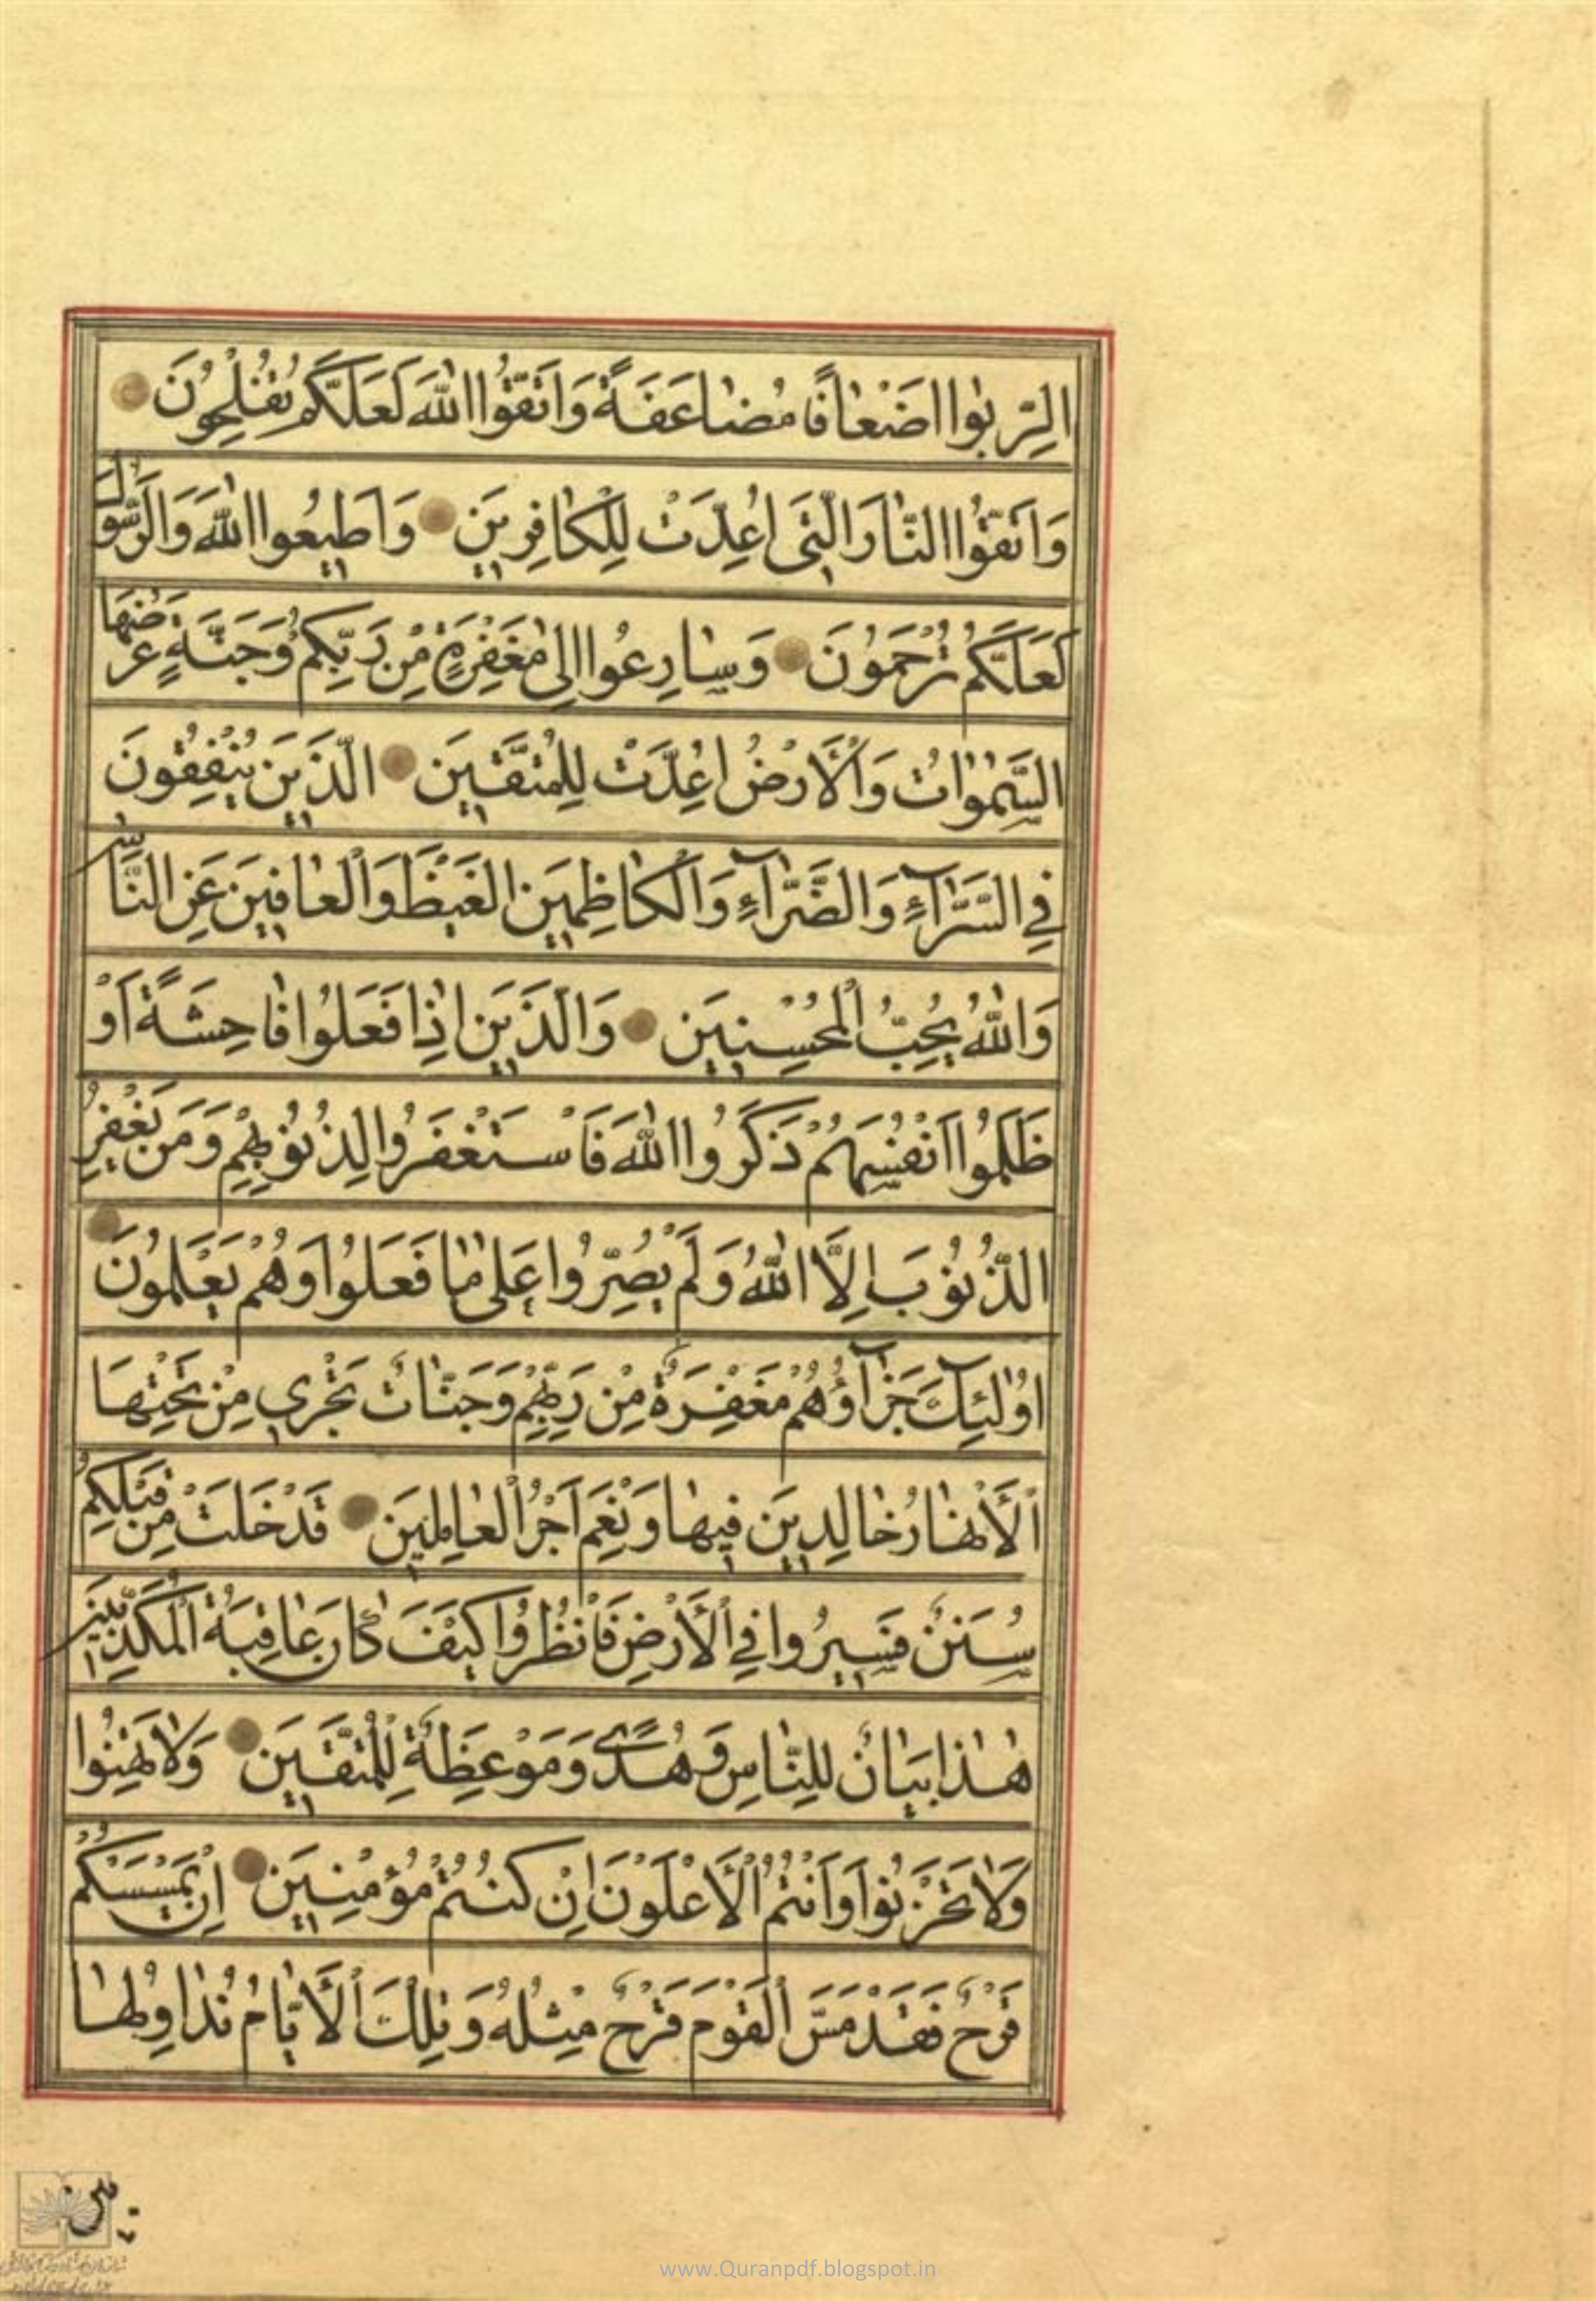 الرِّبٰوا اَضْعٰافًا مُضٰاعَفَةً وَاتَّقُوا اللّٰهَ لَعَلَّكُمْ تُفْلِحُونَ
وَاتَّقُوا النّٰارَ الَّتِى اُعِدَّتْ لِلْكٰافِرِينَ وَاَطِيعُوا اللّٰهَ وَالرَّسُولَ
لَعَلَّكُمْ تُرْحَمُونَ وَسٰارِعُوا اِلىٰ مَغْفِرَةٍ مِنْ رَبِّكُمْ وَجَنَّةٍ عَرْضُهَا
السَّمٰوٰاتُ وَالْاَرْضُ اُعِدَّتْ لِلْمُتَّقِينَ الَّذِينَ يُنْفِقُونَ
فِي السَّرّٰآءِ وَالضَّرّٰآءِ وَالْكٰاظِمِينَ الْغَيْظَ وَالْعٰافِينَ عَنِ النّٰاسِ
وَاللّٰهُ يُحِبُّ الْمُحْسِنِينَ وَالَّذِينَ اِذٰا فَعَلُوا فٰاحِشَةً اَوْ
ظَلَمُوا اَنْفُسَهُمْ ذَكَرُوا اللّٰهَ فَاسْتَغْفَرُوا لِذُنُوبِهِمْ وَمَنْ يَغْفِرُ
الذُّنُوبَ اِلَّا اللّٰهُ وَلَمْ يُصِرُّوا عَلىٰ مٰا فَعَلُوا وَهُمْ يَعْلَمُونَ
اُولٰئِكَ جَزٰآؤُهُمْ مَغْفِرَةٌ مِنْ رَبِّهِمْ وَجَنّٰاتٌ تَجْرِي مِنْ تَحْتِهَا
الْاَنْهٰارُ خٰالِدِينَ فِيهٰا وَنِعْمَ اَجْرُ الْعٰامِلِينَ قَدْ خَلَتْ مِنْ قَبْلِكُمْ
سُنَنٌ فَسِيرُوا فِي الْاَرْضِ فَانْظُرُوا كَيْفَ كٰانَ عٰاقِبَةُ الْمُكَذِّبِينَ
هٰذٰا بَيٰانٌ لِلنّٰاسِ وَهُدًى وَمَوْعِظَةٌ لِلْمُتَّقِينَ وَلٰا تَهِنُوا
وَلٰا تَحْزَنُوا وَاَنْتُمُ الْاَعْلَوْنَ اِنْ كُنْتُمْ مُؤْمِنِينَ اِنْ يَمْسَسْكُمْ
قَرْحٌ فَقَدْ مَسَّ الْقَوْمَ قَرْحٌ مِثْلُهُ وَتِلْكَ الْاَيّٰامُ نُدٰاوِلُهٰا
www.Quranpdf.blogspot.in